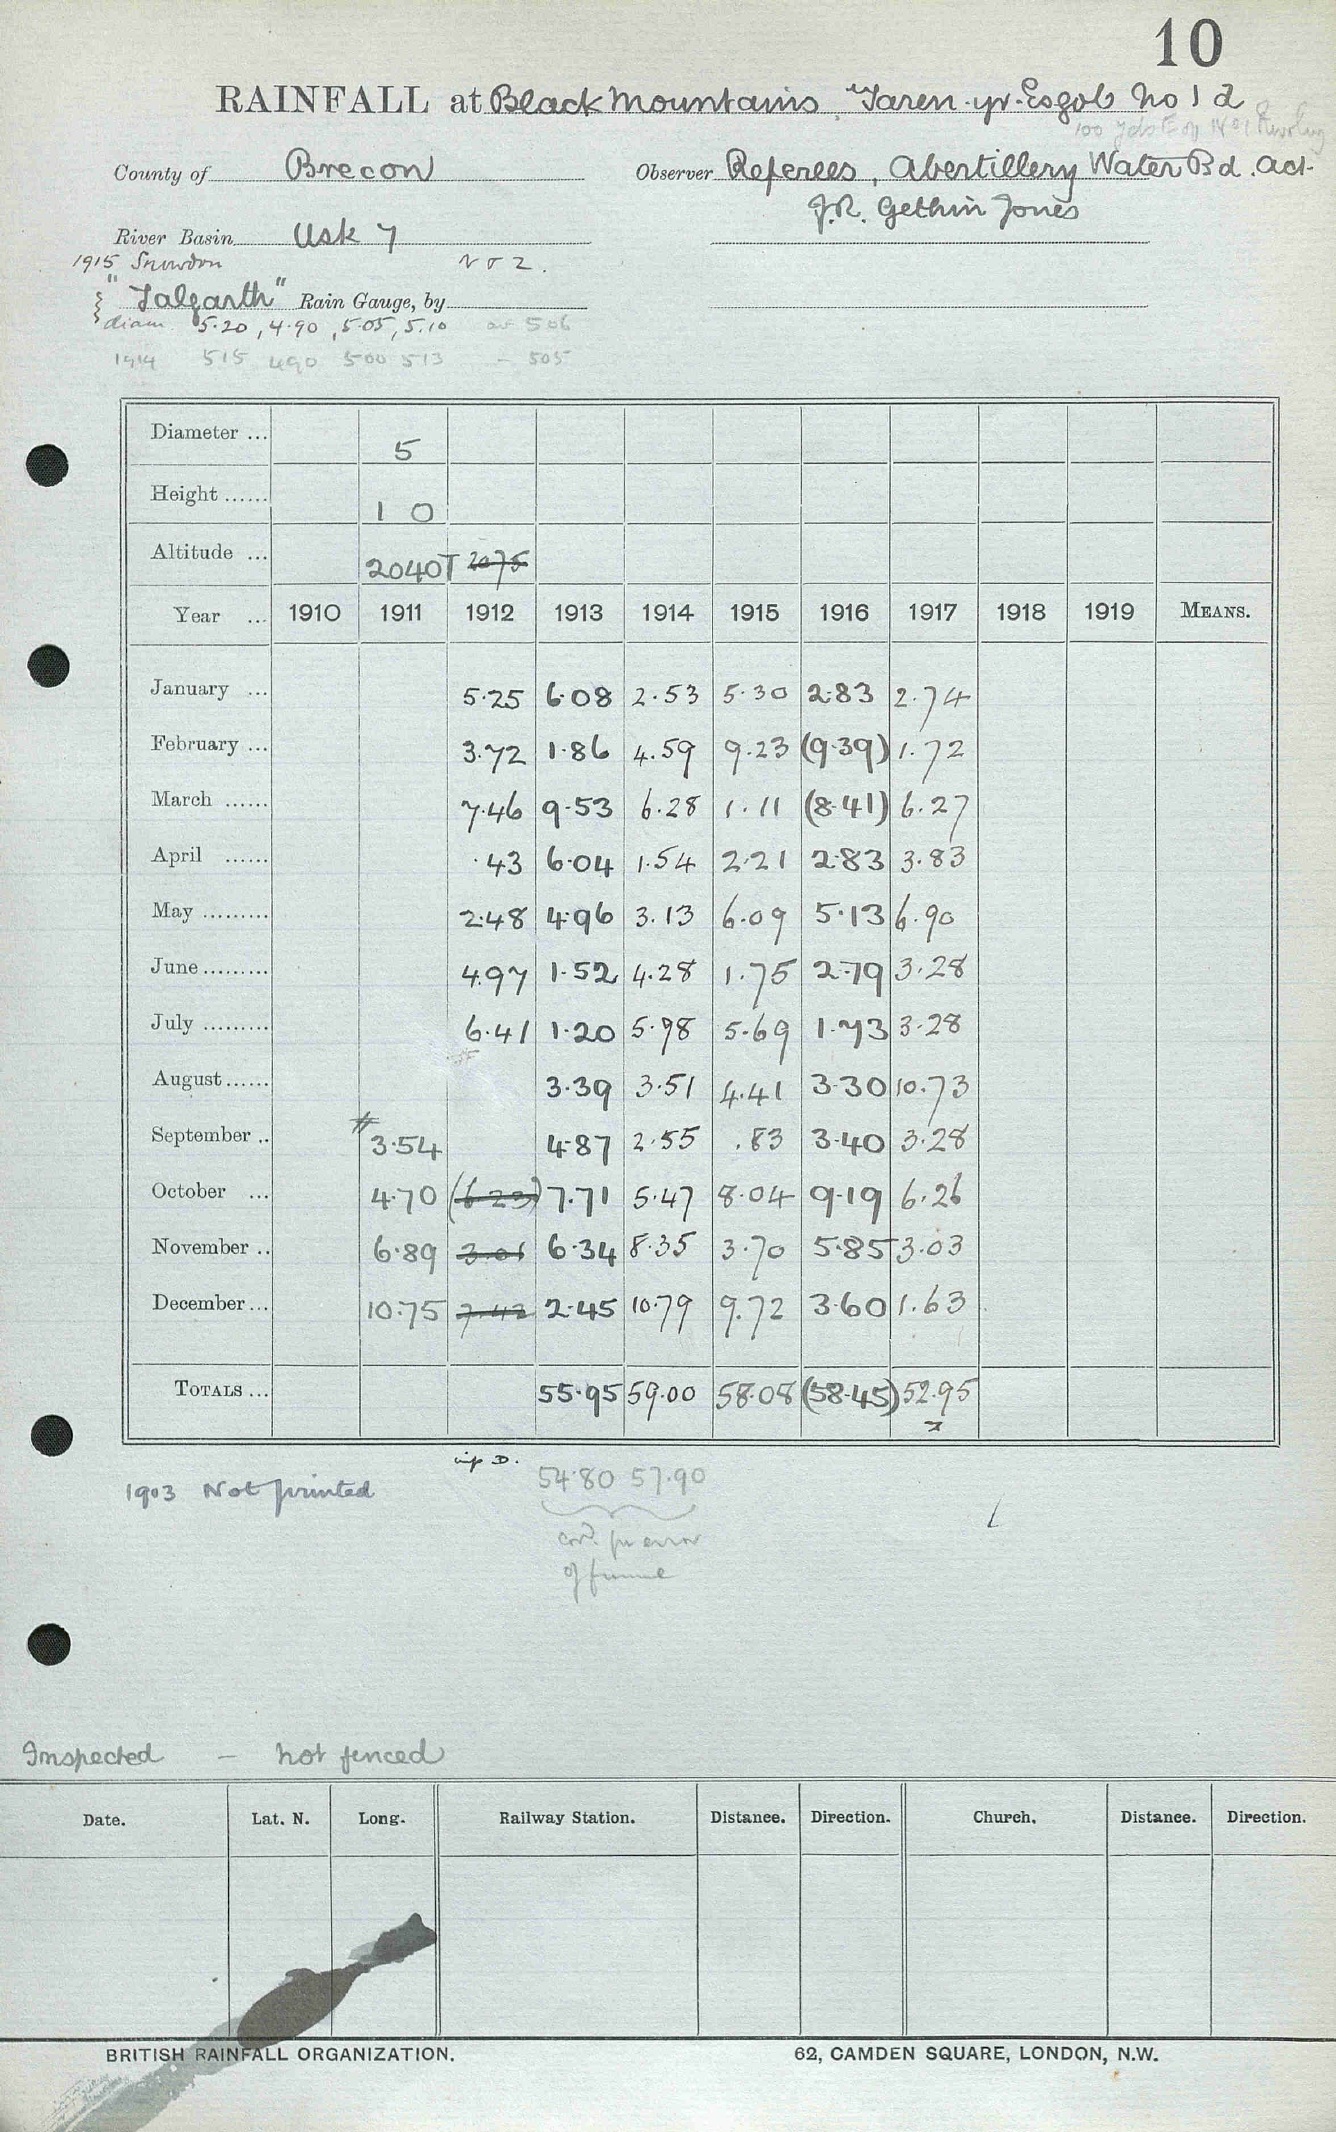 10
RAINFALL at Black Mountains, "Taren-yr-Esgob No 1 a
100 yds E of No 1
County of Brecon Observer Referees, Abertillery Water Bd. Act.
J.R. Gethin Jones
River Basin Usk 7
1915 Snowdon No 2.
"Talgarth" Rain Gauge, by
diam 5.20, 4.90, 5.05, 5.10 av 506
1914 515 490 500 513 — 505
Diameter ... 5
Height ...... 1 0
Altitude ... 2040T 2075
Year ... 1910 1911 1912 1913 1914 1915 1916 1917 1918 1919 MEANS.
January ... 5.25 6.08 2.53 5.30 2.83 2.74
February ... 3.72 1.86 4.59 9.23 (9.39) 1.72
March ...... 7.46 9.53 6.28 1.11 (8.41) 6.27
April ...... .43 6.04 1.54 2.21 2.83 3.83
May ......... 2.48 4.96 3.13 6.09 5.13 6.90
June ......... 4.97 1.52 4.28 1.75 2.79 3.28
July ......... 6.41 1.20 5.98 5.69 1.73 3.28
August ...... 3.39 3.51 4.41 3.30 10.73
September .. 3.54 4.87 2.55 .83 3.40 3.28
October ... 4.70 (6.23) 7.71 5.47 8.04 9.19 6.26
November .. 6.89 3.01 6.34 8.35 3.70 5.85 3.03
December ... 10.75 7.42 2.45 10.79 9.72 3.60 1.63
TOTALS ... 55.95 59.00 58.08 (58.45) 52.95
imp D.
1903 Not printed 54.80 57.90
cord. for error
of funnel
Inspected — not fenced
Date. Lat. N. Long. Railway Station. Distance. Direction. Church. Distance. Direction.
BRITISH RAINFALL ORGANIZATION. 62, CAMDEN SQUARE, LONDON, N.W.